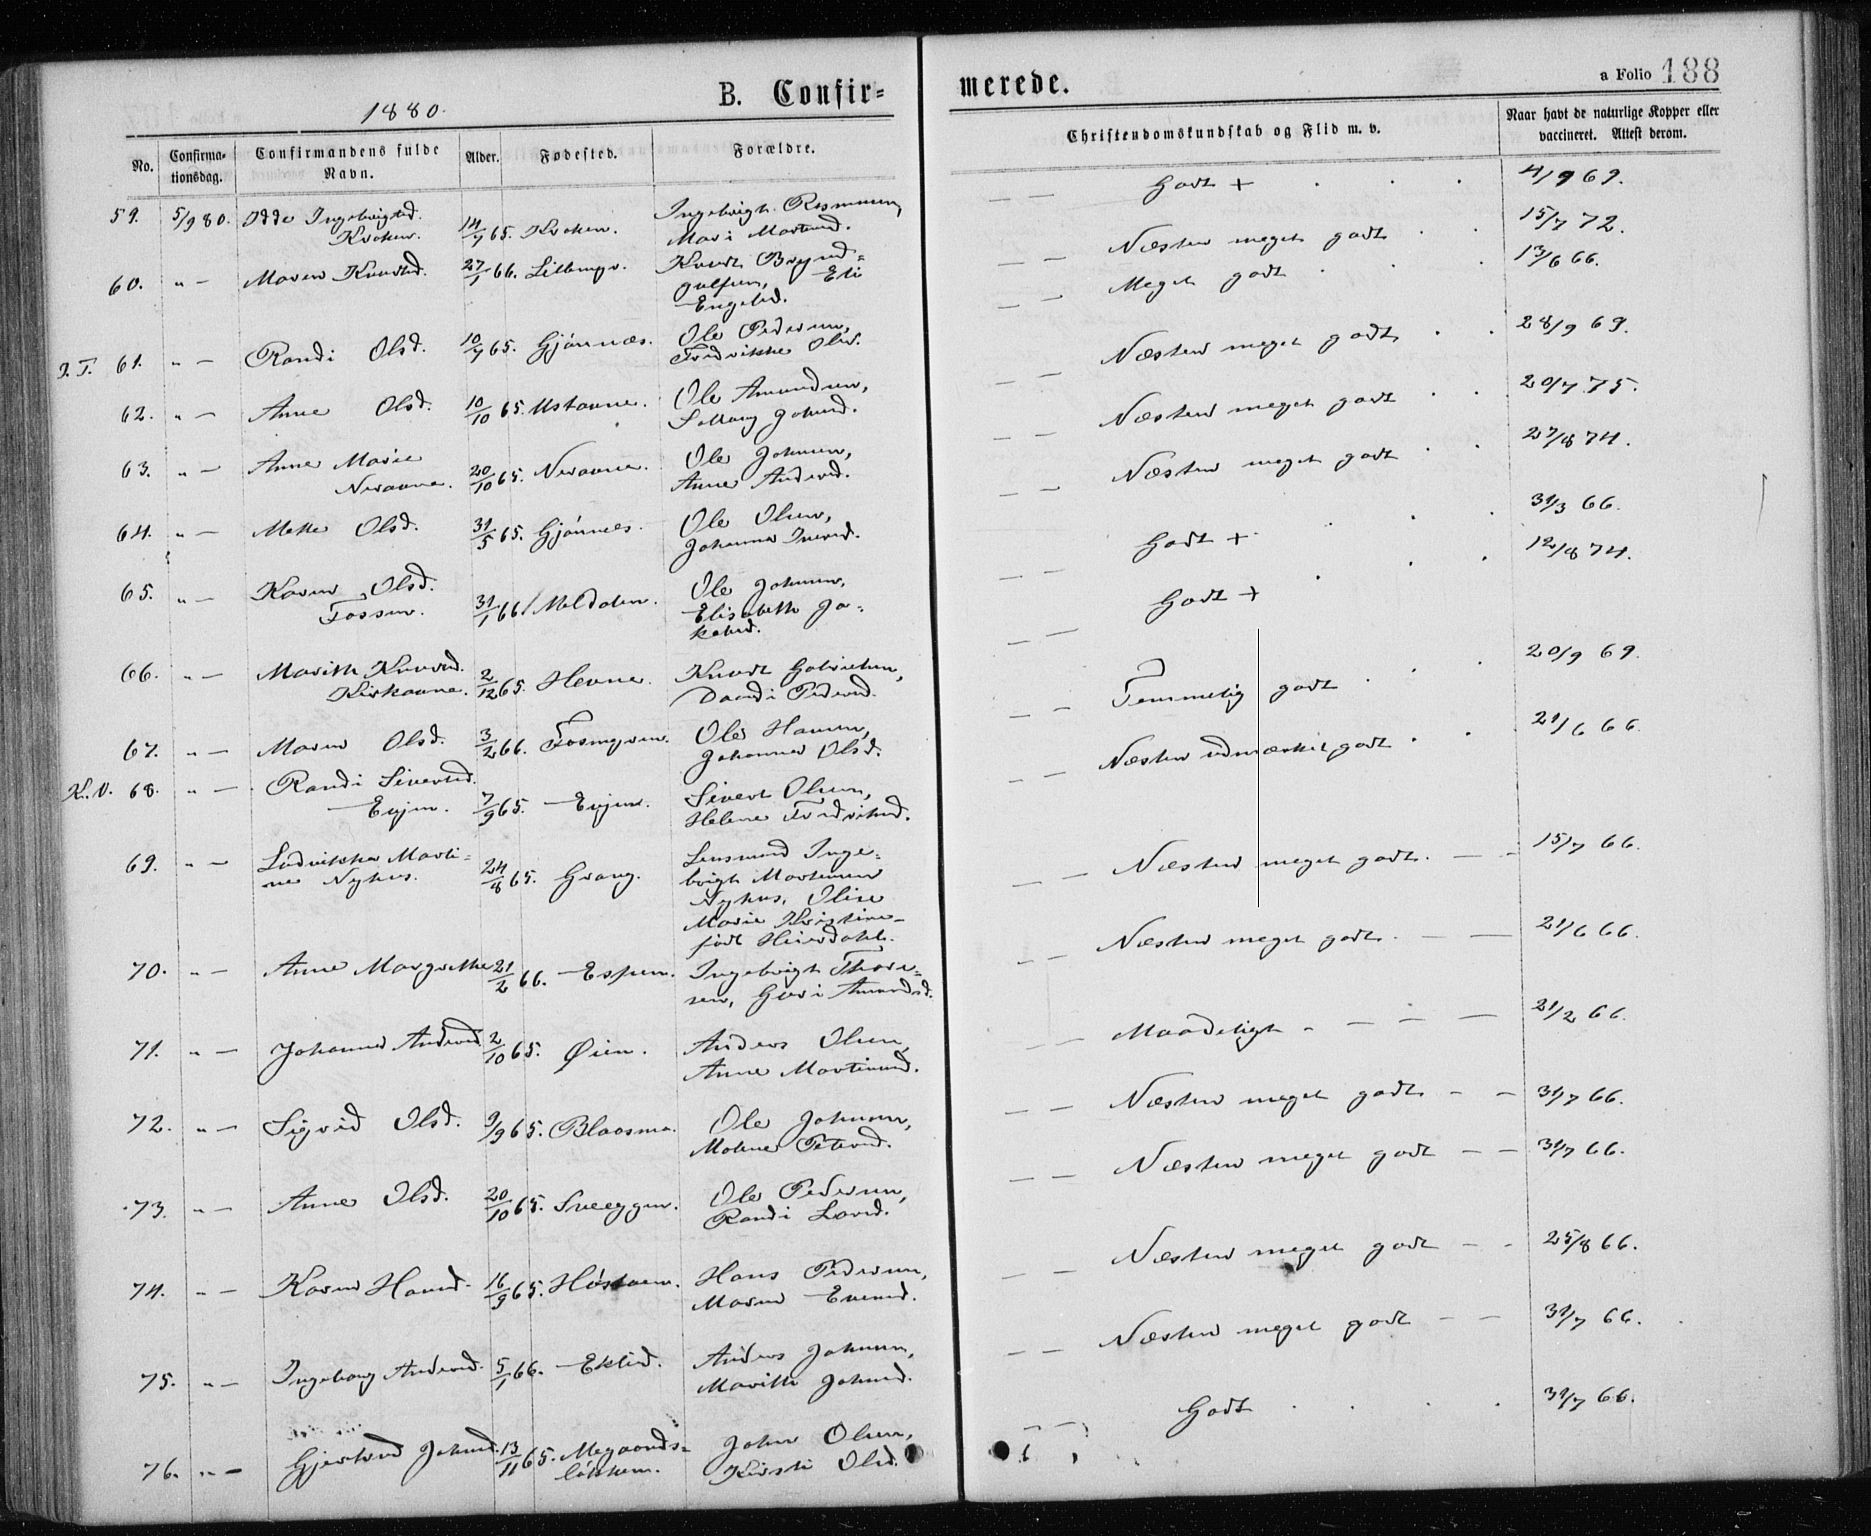 1880.
B. Confir=
No.
Confirma-
tionsdag.
Confirmandens fulde
Navn.
Alder.
Fødested.
Forældre.
59. 5/9 80. Odde Ingebrigtsd.
Kroken. 14/7 65. Kroken.
Mari
60. " — Maren Knudsd. 27/1 66.
Knudt
Eli
Engelsd.
I. T. 61. " — Randi Olsd. 10/7 65. Gjønnæs. Ole Pedersen,
Fredrikke Olsd.
62. " — Anne Olsd. 10/10 65. Ustavne. Ole Amundsen,
Johnsd.
63. " — Anne Marie
Neraune. 20/10 65. Neraune. Ole Johnsen,
Anne Andersd.
64. " — Mette Olsd. 31/5 65. Gjønnes. Ole Olsen,
Johanna Iversd.
65. " — Karen Olsd.
Fossen. 31/1 66. Meldalen. Ole Johnsen,
Elisabeth Ja-
kobsd.
66. " — Marith Knudsd.
Kirkavne. 2/12 65. Hevne. Knudt
Pedersd.
67. " — Maren Olsd. 3/2 66. Fosmyren. Ole Hansen,
Johanna Olsd.
K. V. 68. " — Randi Sivertsd.
Evjen. 7/9 65. Evjen. Sivert Olsen,
Helene Fredriksd.
69. " — Ludvikka Marti-
ne Nyhus. 24/8 65. Grang. Lensmand Inge-
brigt Mortensen
Nyhus, Oline
Marie Kristine
født
70. " — Anne Margrethe 21/2 66. Espen. Ingebrigt Thore-
sen, Guri Amundsd.
71. " — Johanna Andersd. 2/10 65. Øien. Anders Olsen,
Anne Martinusd.
72. " — Sigrid Olsd. 9/9 65. Blaasmo. Ole Johnsen,
Malene Petersd.
73. " — Anne Olsd. 20/10 65. Sneeggen. Ole Pedersen,
Randi Larsd.
74. " — Karen Hansd. 16/9 65. Hans Pedersen,
Maren Evensd.
75. " — Ingeborg Andersd. 5/1 66. Eklid. Anders Johnsen,
Marith Johnsd.
76. " — Gjertrud Johnsd. 13/11 65. Megaards-
løkken. John Olsen,
Kirsti Olsd.
merede.
a Folio 188
Christendomskundskab og Flid m. v.
Naar havt de naturlige Kopper eller
vaccineret. Attest derom.
— — Godt + 4/9 69.
— — Næsten meget godt 15/7 72.
— — Meget godt 13/6 66.
— — Næsten meget godt 28/9 69.
— — Næsten meget godt 20/7 75.
— — Næsten meget godt 27/8 74.
— — Godt + 31/3 66.
— — Godt + 12/8 74.
— — Temmelig godt 20/9 69.
— — Næsten udmærket godt 21/6 66.
— — Næsten meget godt. — — 15/7 66.
— — Næsten meget godt. — — 21/6 66.
— — Maadeligt — — — — 21/2 66.
— — Næsten meget godt — — 31/7 66.
— — Næsten meget godt — — 31/7 66.
— — Næsten meget godt — — 25/8 66.
— — Næsten meget godt — — 31/7 66.
— — Godt 31/7 66.